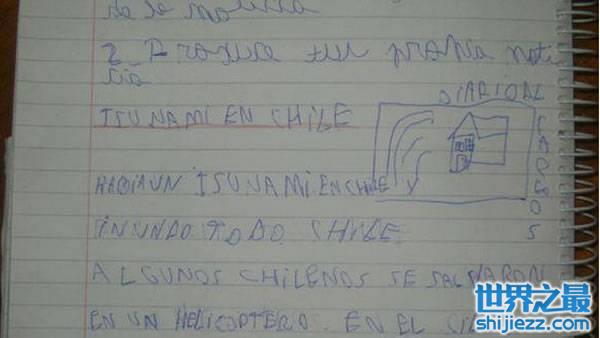 2_ Produce tu propia noti
cia
DIARIO AL
TSUNAMI EN CHILE
HABIA UN TSUNAMI EN CHILE Y
INUNDO TODO CHILE
ALGUNOS CHILENOS SE SALVARON
EN UN HELICOPTERO. EN EL
世界之最
shijiezz.com